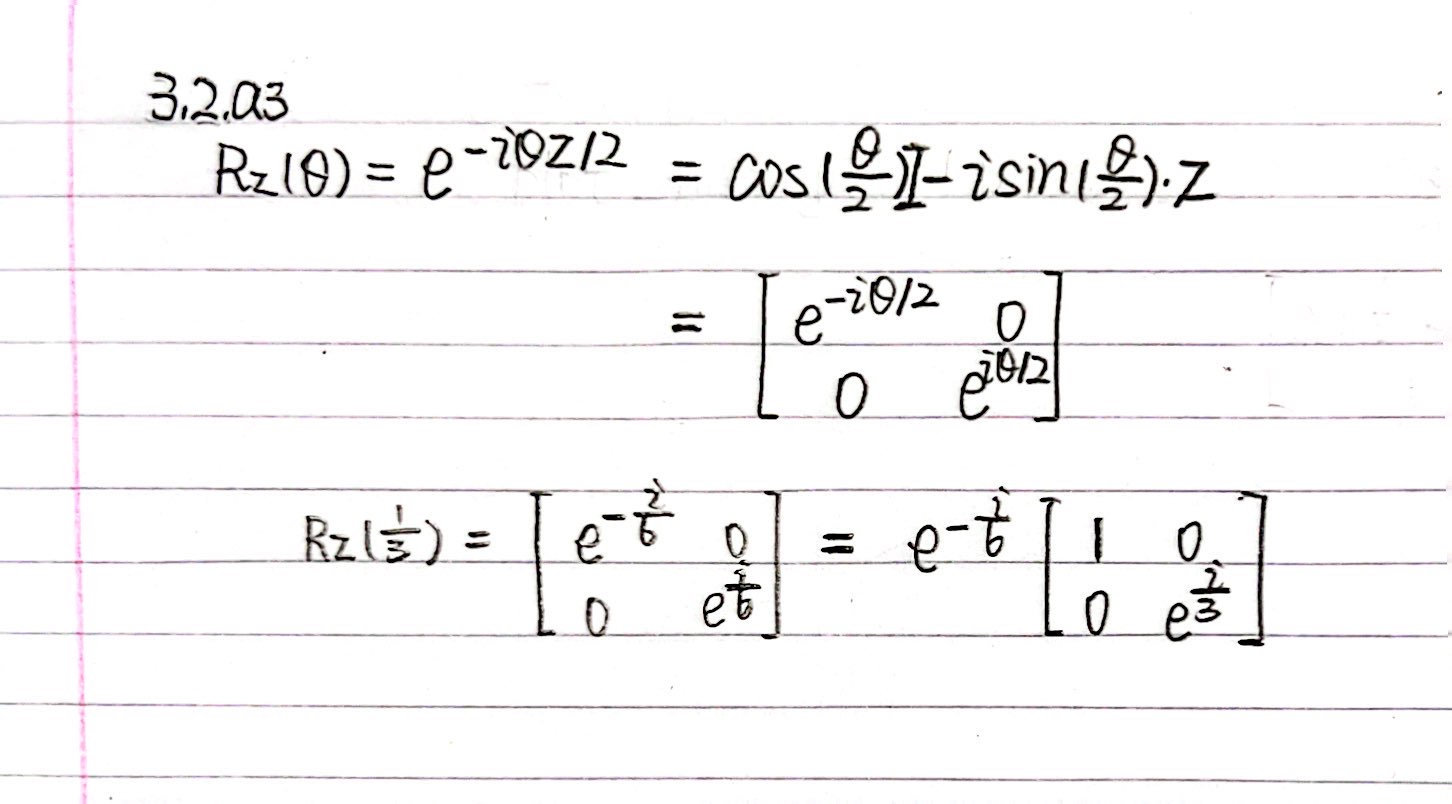 3.2.a3
Rz(θ) = e^{-iθZ/2} = cos(θ/2)I - i sin(θ/2)·Z
= [ e^{-iθ/2} 0
0 e^{iθ/2} ]
Rz(1/3) = [ e^{-i/6} 0 ; 0 e^{i/6} ] = e^{-i/6} [ 1 0 ; 0 e^{i/3} ]